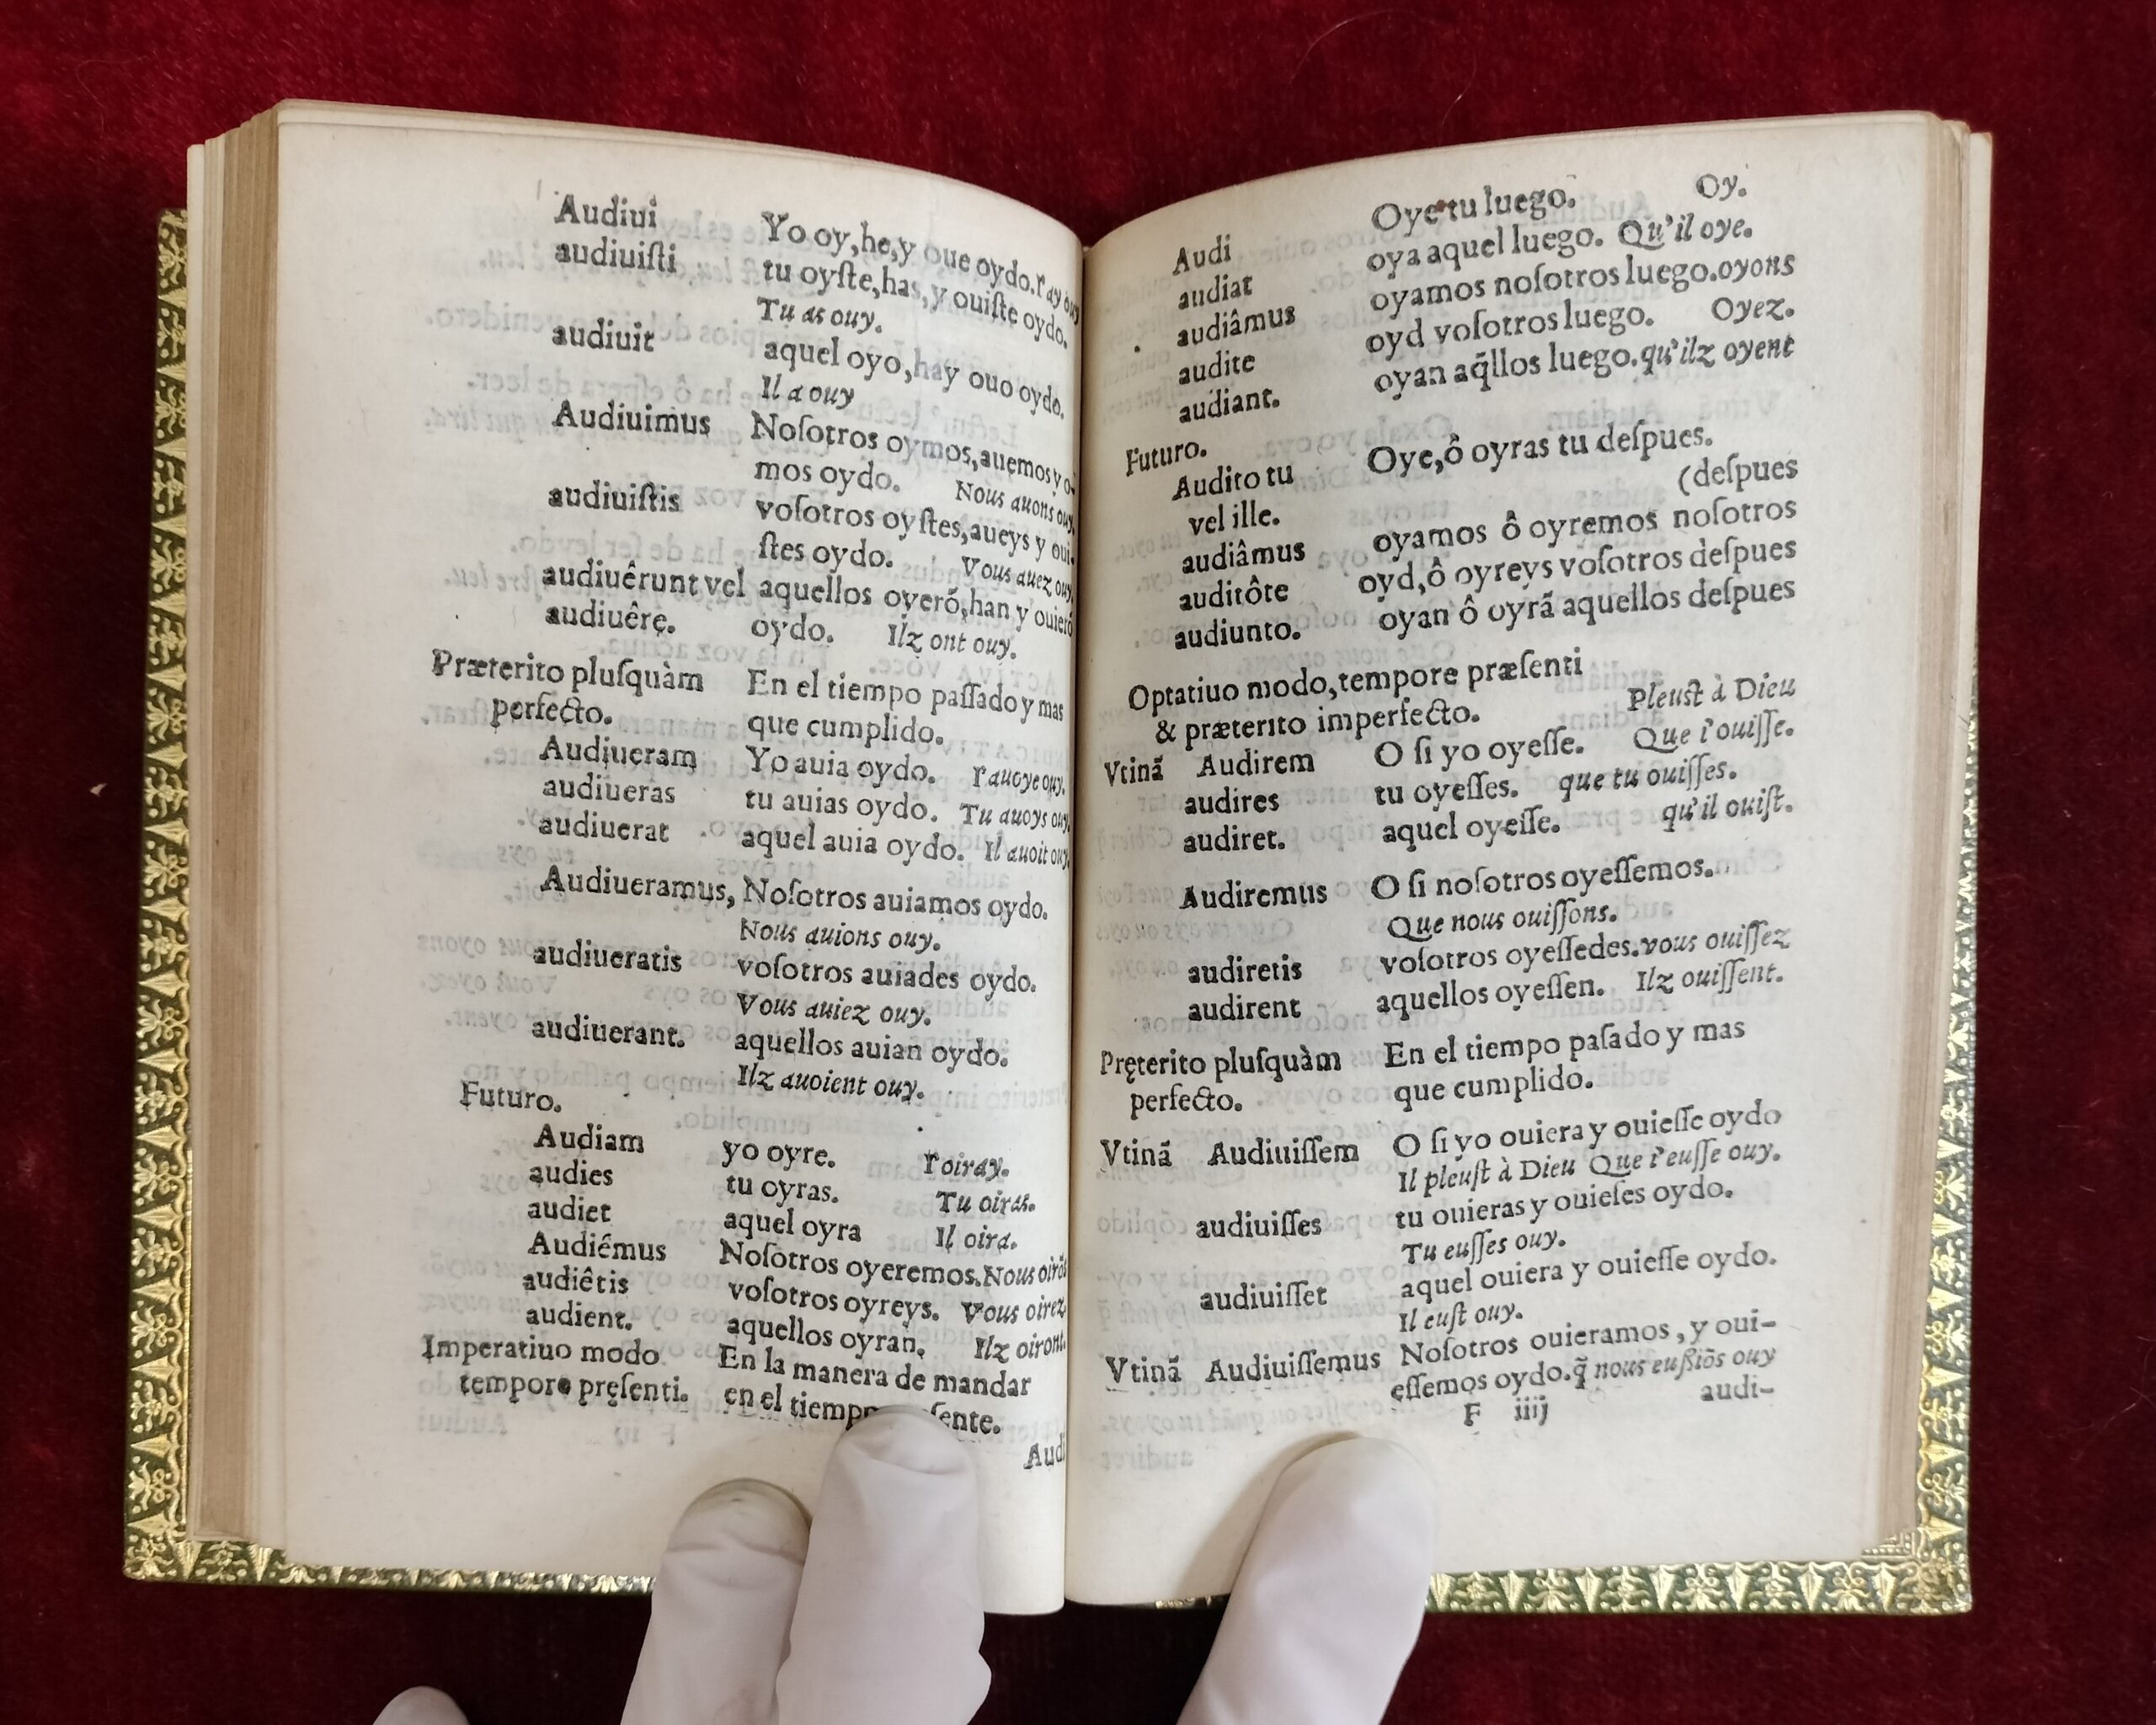 Audiui Yo oy,he,y oue oydo. I'ay ouy
audiuiſti tu oyſte,has,y ouiſte oydo.
Tu as ouy.
audiuit aquel oyo,ha y ouo oydo.
Il a ouy
Audiuimus Noſotros oymos,auemos y o-
mos oydo. Nous auons ouy.
audiuiſtis voſotros oyſtes,aueys y oui-
ſtes oydo. Vous auez ouy.
audiuêrunt vel aquellos oyerõ,han y ouierõ
audiuêre. oydo. Ilz ont ouy.
Præterito pluſquàm En el tiempo paſſado y mas
perfecto. que cumplido.
Audiueram Yo auia oydo. I'auoye ouy.
audiueras tu auias oydo. Tu auoys ouy.
audiuerat aquel auia oydo. Il auoit ouy.
Audiueramus, Noſotros auiamos oydo.
Nous auions ouy.
audiueratis voſotros auiades oydo.
Vous auiez ouy.
audiuerant. aquellos auian oydo.
Ilz auoient ouy.
Futuro.
Audiam yo oyre. I'oiray.
audies tu oyras. Tu oiras.
audiet aquel oyra Il oira.
Audiêmus Noſotros oyeremos. Nous oirõs
audiêtis voſotros oyreys. Vous oirez
audient. aquellos oyran. Ilz oiront.
Imperatiuo modo En la manera de mandar
tempore pręſenti. en el
Audi
Audi Oye tu luego. Oy.
audiat oya aquel luego. Qu'il oye.
audiâmus oyamos noſotros luego. oyons
audite oyd voſotros luego. Oyez.
audiant. oyan aq̃llos luego. qu'ilz oyent
Futuro.
Audito tu Oye,ô oyras tu deſpues.
vel ille. (deſpues
audiâmus oyamos ô oyremos noſotros
auditôte oyd,ô oyreys voſotros deſpues
audiunto. oyan ô oyrã aquellos deſpues
Optatiuo modo,tempore præſenti
& præterito imperfecto. Pleuſt à Dieu
Vtinã Audirem O ſi yo oyeſſe. Que i'ouiſſe.
audires tu oyeſſes. que tu ouiſſes.
audiret. aquel oyeſſe. qu'il ouiſt.
Audiremus O ſi noſotros oyeſſemos.
Que nous ouiſſons.
audiretis voſotros oyeſſedes. vous ouiſſez
audirent aquellos oyeſſen. Ilz ouiſſent.
Pręterito pluſquàm En el tiempo paſado y mas
perfecto. que cumplido.
Vtinã Audiuiſſem O ſi yo ouiera y ouieſſe oydo
Il pleuſt à Dieu Que i'euſſe ouy.
audiuiſſes tu ouieras y ouieſes oydo.
Tu euſſes ouy.
audiuiſſet aquel ouiera y ouieſſe oydo.
Il euſt ouy.
Vtinã Audiuiſſemus Noſotros ouieramos, y oui-
eſſemos oydo. q̃ nous eußiõs ouy
F iiij audi-